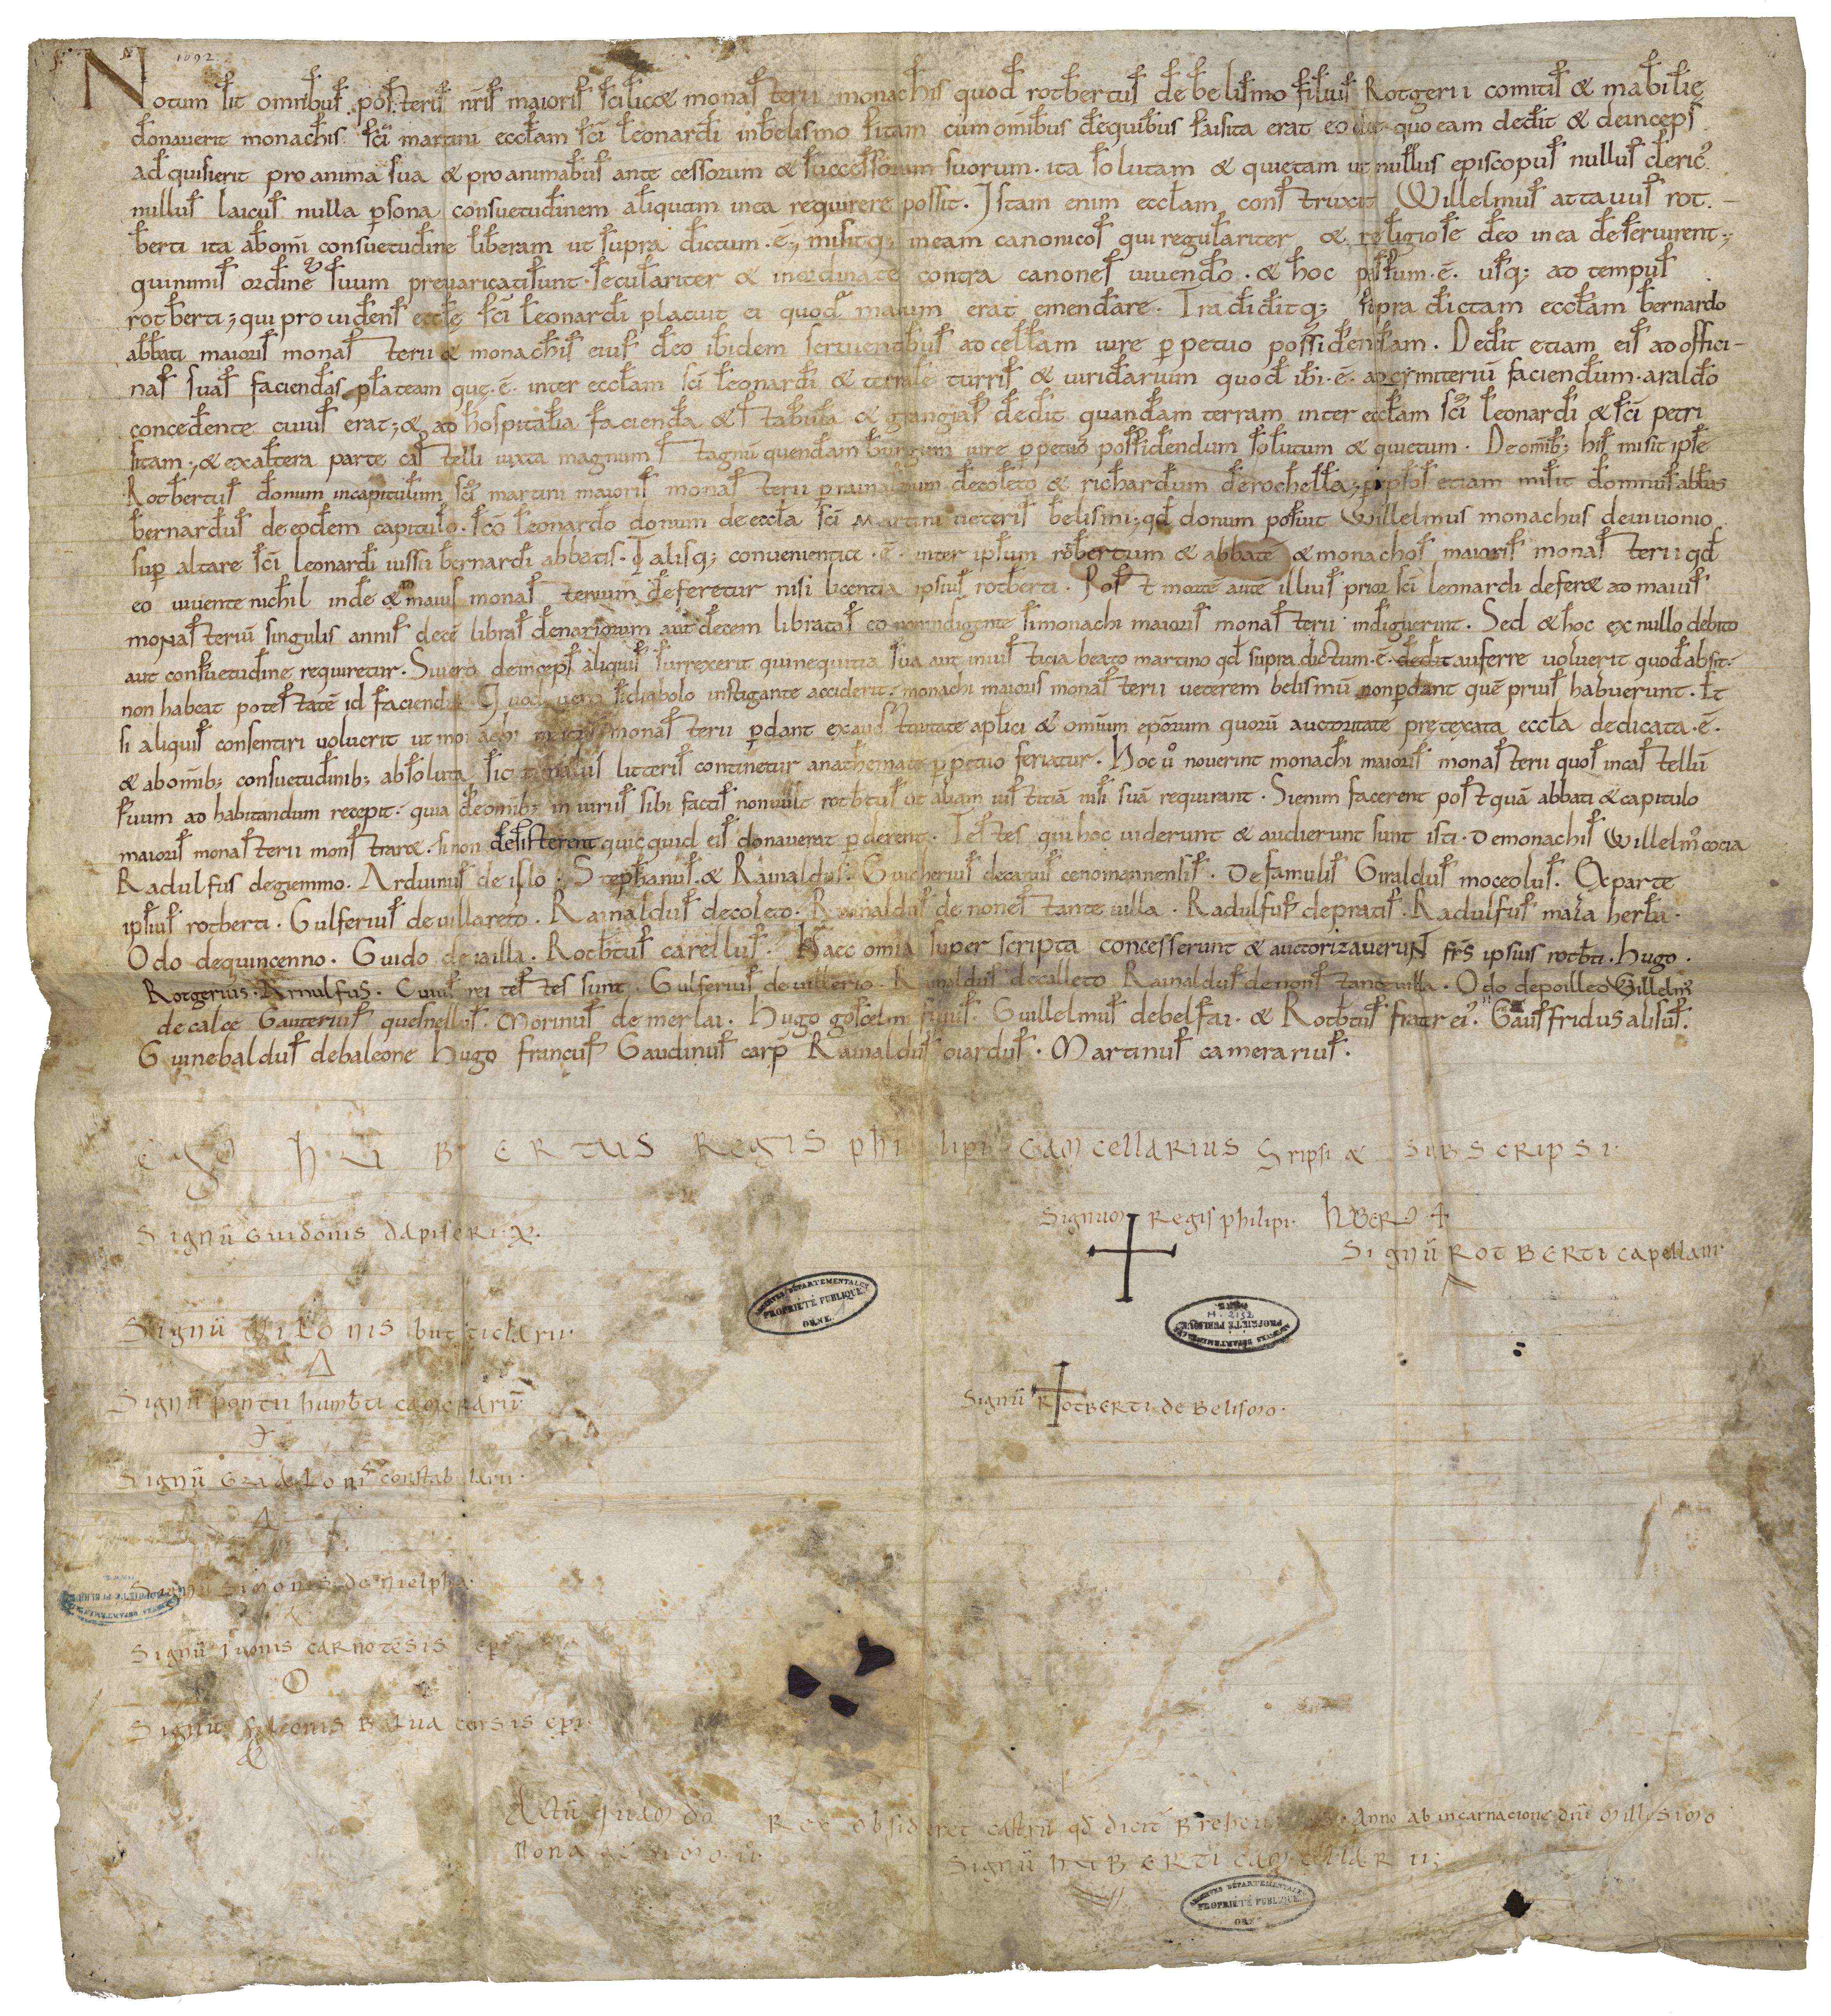 1092
Notum sit omnibus posteris nr̄is maioris scilicet monasterii monachis quod rotbertus de belismo filius Rotgerii comitis & mabilię
donaverit monachis sc̄i martini eccl̄am sc̄i leonardi inbelismo sitam cum omibus dequibus saisita erat eo die quo eam dedit & deinceps
adquisierit pro anima sua & pro animabus ante cessorum & successorum suorum. ita solutam & quietam ut nullus episcopus nullus cleric᾿
nullus laicus nulla ꝑsona consuetudinem aliquam inea requirere possit. Istam enim eccl̄am construxit Willelmus attavus rot-
berti ita abomī consuetudine liberam ut supra dictum .ē., misitq; ineam canonicos qui regulariter & religiose deo inea deservirent;
quinimis ordinē suum prevaricati sunt. seculariter & inordinate contra canones vivendo. & hoc passum .ē. usq; ad tempus
rotberti; qui providens eccl̄ę sc̄i leonardi placuit ei quod malum erat emendare. Tradiditq; supra dictam eccl̄am bernardo
abbati maioris monasterii & monachis eius deo ibidem servientibus ad cellam iure ꝑpetuo possidendam. Dedit etiam eis ad offici-
nas suas faciendas plateam quę .ē. inter eccl̄am sc̄i leonardi & turris & viridarium quod ibi .ē. ad cimiterium faciendum. araldo
concedente cuius erat; & ad hospitalia facienda & stabula & grangias dedit quandam terram inter eccl̄am sc̄i leonardi & sc̄i petri
sitam., & exaltera parte castelli iuxta magnum stagnū quendam burgum iure ꝑpetuo possidendum solutum & quietum. De omib; his misit ipse
Rotbertus donum incapitulum sc̄i martini maioris monasterii ꝑ rainaldum decoleto & richardum derochella; ꝑ ipsos etiam misit domnus abbas
bernardus de eodem capitulo. sc̄o leonardo donum de eccl̄a sc̄i Martini veteris belismi; qd̄ donum posuit Willelmus monachus devivonio
suꝑ altare sc̄i leonardi iussu bernardi abbatis. Talisq; convenientia .ē. inter ipsum robertum & abbatē & monachos maioris monasterii qd̄
eo vivente nichil inde & maius monasterium deferetur nisi licentia ipsius rotberti. Post mortē autē illius prior sc̄i leonardi deferet ad maius
monasteriū singulis annis decē libras denariorum aut decem libratas eo non indigente si monachi maioris monasterii indiguerint. Sed & hoc ex nullo debito
aut consuetudine requiretur. Si vero deinceps aliquis surrexerit qui nequitia sua aut iniusticia beato martino qd̄ supra dictum .ē. dedit auferre voluerit quod absit.
non habeat potestatē id faciendi. Quod vero si diabolo instigante acciderit. monachi maioris monasterii veterem belismū non ꝑdant quē prius habuerunt. Et
si aliquis consentiri voluerit ut monachi maioris monasterii ꝑdant ex auctoritate apl̄ici & omium epōrum quorū auctoritate pretexata eccl̄a dedicata .ē.
& abomib; consuetudinib; absoluta sic in eius litteris continetur anathemate ꝑpetuo feriatur. Hoc ů noverint monachi maioris monasterii quos incastellū
suum ad habitandum recepit. quia deomib; iniuriis sibi factis nonvult rotb̄tus ut aliam iusticiā nisi suā requirant. Si enim facerent postquā abbati & capitulo
maioris monasterii monstraret. si non desisterent quicquid eis donaverat ꝑderent. Testes qui hoc viderunt & audierunt sunt isti. Demonachis Willelm᾿ cocia
Radulfus degiemmo. Arduinus de islo. Stephanus. & Rainaldus. Guicherius decanus cenomannensis. De famulis Giraldus moceolus. Ex parte
ipsius rotberti. Gulferius devillareto. Rainaldus decoleto. Rainaldus de nonestante villa. Radulfus depratis. Radulfus mala herba.
Odo dequincenno. Guido de iailla. Rotb̄tus carellus. Haec omīa super scripta concesserunt & auctorizaveruN fr̄s ipsius rotb̄ti. hugo.
Rotgerius. Arnulfus. Cuius rei testes sunt. Gulferius de villerio. Rainaldus decalleto Rainaldus denonstante villa. Odo depoilleo Willelm᾿
decalce Gauterius quesnellus. Morinus de merlai. Hugo goscelm filius. Guillelmus debelfai. & Rotb̄tus frater ei᾿. Gausfridus alisus.
Guinebaldus debaleone Hugo francus Gaudinus carp̄ Rainaldus oiardus. Martinus camerarius.
ego hubertus Regis philipi cancellarius Sripsi & subscripsi.
Signum Regis philipi. HBER
Signū Guidonis dapiferi.
Signū Rotberti capellani.
Signū Milonis butticlarii.
Signū pontii humb̄ti camerarii
Signū Rotberti de Belismo.
Signū Gradiloni constabularii.
Signū Simonis de nielpha.
Signū Ivonis carnotēsis ep̄i
Signū fulconis Balvacensis ep̄i.
Actū quando Rex obsideret castrū qd̄ dicit Breher Anno ab incarnacione dn̄i Millesimo
Nonagesimo. ii. Signū huBerti cancellarii;
ARCHIVES DÉPARTEMENTALES
PROPRIÉTÉ PUBLIQUE
ORNE
ARCHIVES DÉPARTEMENTALES
PROPRIÉTÉ PUBLIQUE
ORNE
H. 2152
ARCHIVES DÉPARTEMENTALES
PROPRIÉTÉ PUBLIQUE
ORNE